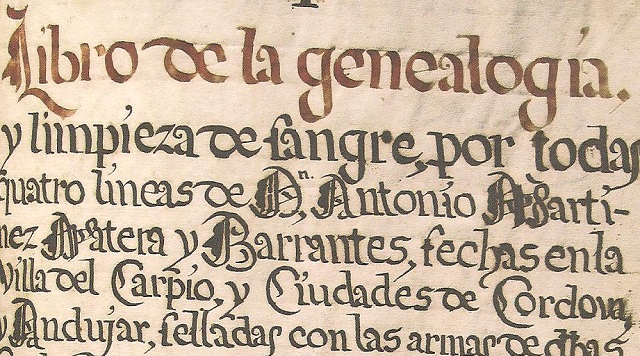 Libro de la genealogía.
y limpieza de sangre, por todas
quatro lineas de Dn. Antonio Marti-
nez Matera y Barrantes, fechas en la
villa del Carpio, y Ciudades de Cordova,
y Andujar, selladas con las armas de dhas